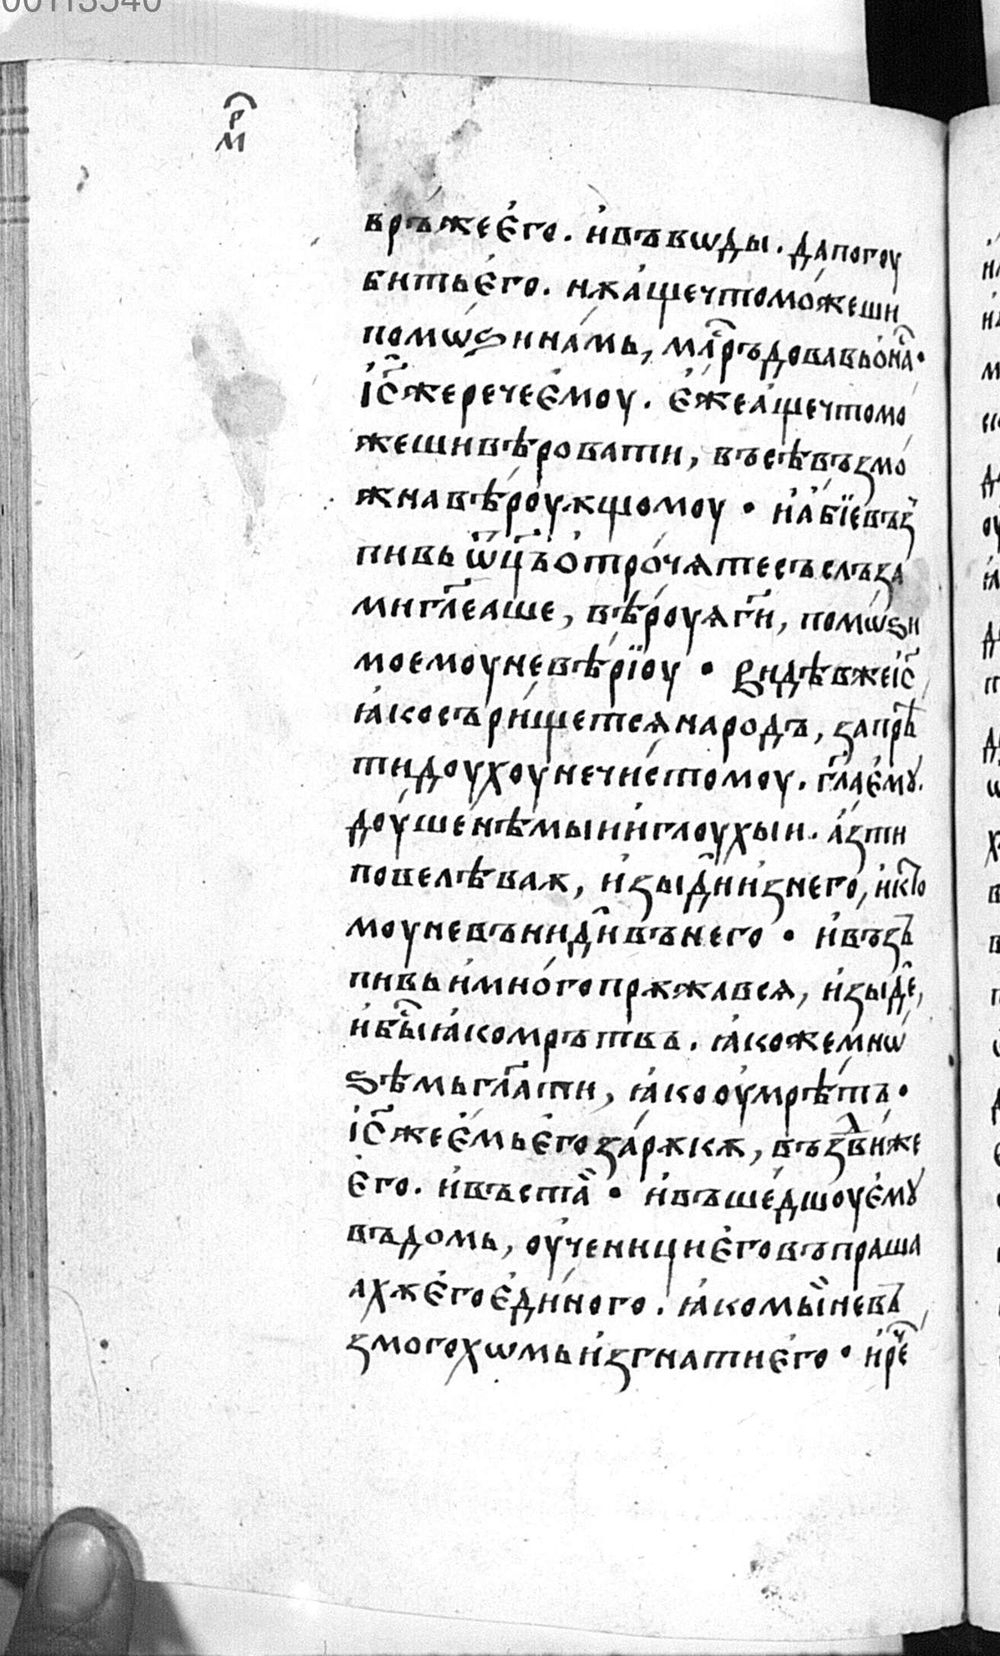 00113540
р҃м
връже є҆го. и҆ въ вѡды. да погоу
бить є҆го. нѫ а҆ще что мо́жеши
помѡѕи на́мь, млⷭ҇ръдовавь ѡ҆ на̑.
І҆с҃ же рече є҆моу. є҆же а҆ще что мо
жеши вѣровати, въсѣ възмо
жна вѣроуѫщомоу · и҆ а҆бїе въз̾
пивь ѡ҃ц҃ъ ѻ҆троча́те съ слъза
ми гл҃аше, вѣроуѧ г҃и, помѡѕи
моемоу невѣрїоу · видѣв же і҆с҃
ꙗ҆ко съри́щетсѧ народъ, запрѣ
ти доухоу нечи́стомоу. гл҃ѧ є҆мꙋ.
доу́ше нѣмыи и҆ глоухыи. а҆з ти
повелѣваѫ, и҆зыд̑и и҆з него, и҆ ктⷪ҇
моу не въниди въ него · и҆ въз̾
пивь и҆ мно́го прѫжавсѧ, и҆зыде,
и҆ быⷭ҇ ꙗ҆ко мрътвъ. ꙗ҆коже мнѡ
ѕѣмь гл҃ати, ꙗ҆ко оу҆мрѣтъ.
І҆с҃ же є҆мь є҆го за рѫкѫ, въздⷡ҇иже
є҆го. и҆ въста̀ · и҆ въшедшоу є҆мꙋ
въ домь, оу҆ченици є҆го въпраша
ахѫ є҆го є҆ди́ного. ꙗ҆ко мы̀ не въ
змогохѡмь и҆згнати є҆го · и҆ рⷱ҇е